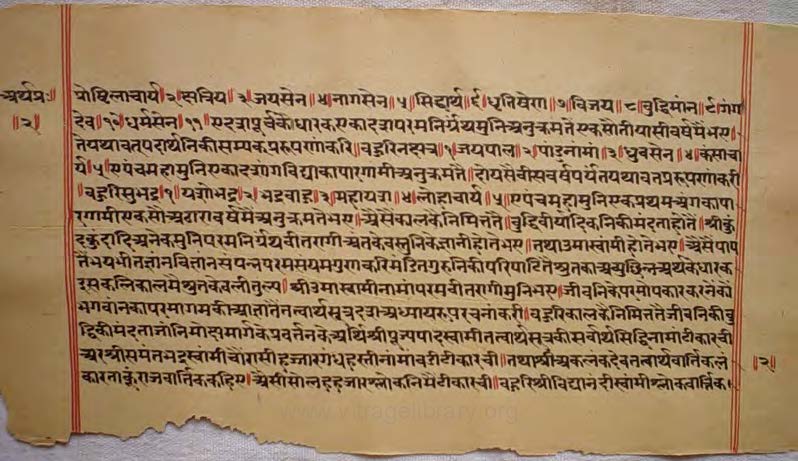 अर्थप्र॰॥
॥२॥
प्रोष्टिलाचार्य २॥ क्षत्रिय ॥३॥ जयसेन ॥४॥ नागसेन ॥५॥ सिद्धार्थ ॥६॥ धृतिषेण ॥७॥ विजय ॥८॥ बुद्धिमांन ॥९॥ गंग
देव ॥१०॥ धर्मसेन ॥११॥ एदशपूर्वके धारक एकादशपरमनिर्ग्रंथमुनि अनुक्रमतै एकसौतीयासीवर्षमैंभए॥
तेयथावतपदार्थनिकीसम्यकप्ररूपणाकरि॥ बहुरिनक्षत्र ॥१॥ जयपाल ॥२॥ पांडुनामां ॥३॥ ध्रुवसेन ॥४॥ कंसाचा
र्य ॥५॥ एपंचमहामुनिएकादशांगविद्याकापारगामीअनुक्रमतै॥ दोयसैवीसवर्षपर्यंतयथावतप्ररूपणाकरी
॥ बहुरिसुभद्र ॥१॥ यशोभद्र ॥२॥ भद्रबाहु ॥३॥ महायश ॥४॥ लोहाचार्य ॥५॥ एपंचमहामुनिएकप्रथमअंगकापा
रगामीएकसोअठारावर्षमैअनुक्रमतैभए॥ अैसेकालकेनिमित्ततै॥ बुद्धिवीर्यादिकनिकीमंदताहोतै॥ श्रीकुं
दकुंदादिअनेकमुनिपरमनिर्ग्रंथवीतरागीअंगकेवस्तुनिकेज्ञानीहोतेभए॥ तथाउमास्वामीहोतेभए॥ अैसेपाप
तैभयभीतज्ञानविज्ञानसंपन्नपरमसंयमगुणकरिमंडितगुरुनिकीपरिपाटीतैश्रुतकाअव्युछिन्नअर्थकेधारक
इसकलिकालमैश्रुतकेवलीतुल्य॥ श्रीउमास्वामीनामांपरमवीतरागीमुनिभए॥ जीवनिकेपरमोपकारकरनेकों
भगवांनकापरमागमकीआज्ञातैतत्वार्थसूत्रदशअध्यायरूपरचनांकरी॥ बहुरिकालकेनिमित्ततैजीवनिकीबु
द्धिकीमंदताजांनिमोक्षमार्गकेप्रवर्तनके अर्थिश्रीपूज्यपादस्वामीतत्वार्थसूत्रकीसर्वार्थसिद्धिनामांटीकारची
॥ अरश्रीसमंतभद्रस्वामीचौरासीहजारगंधहस्तीनामांबडीटीकारची॥ तथाश्रीअकलंकदेवतत्वार्थवार्तिकलं
कारताकुंराजवार्तिककहिए॥ अैसीसोलहहजारश्लोकनिमैटीकारची॥ बहुरिश्रीविद्यानंदीस्वांमीश्लोकवार्त्तिक।
॥२॥
www.vitragelibrary.org